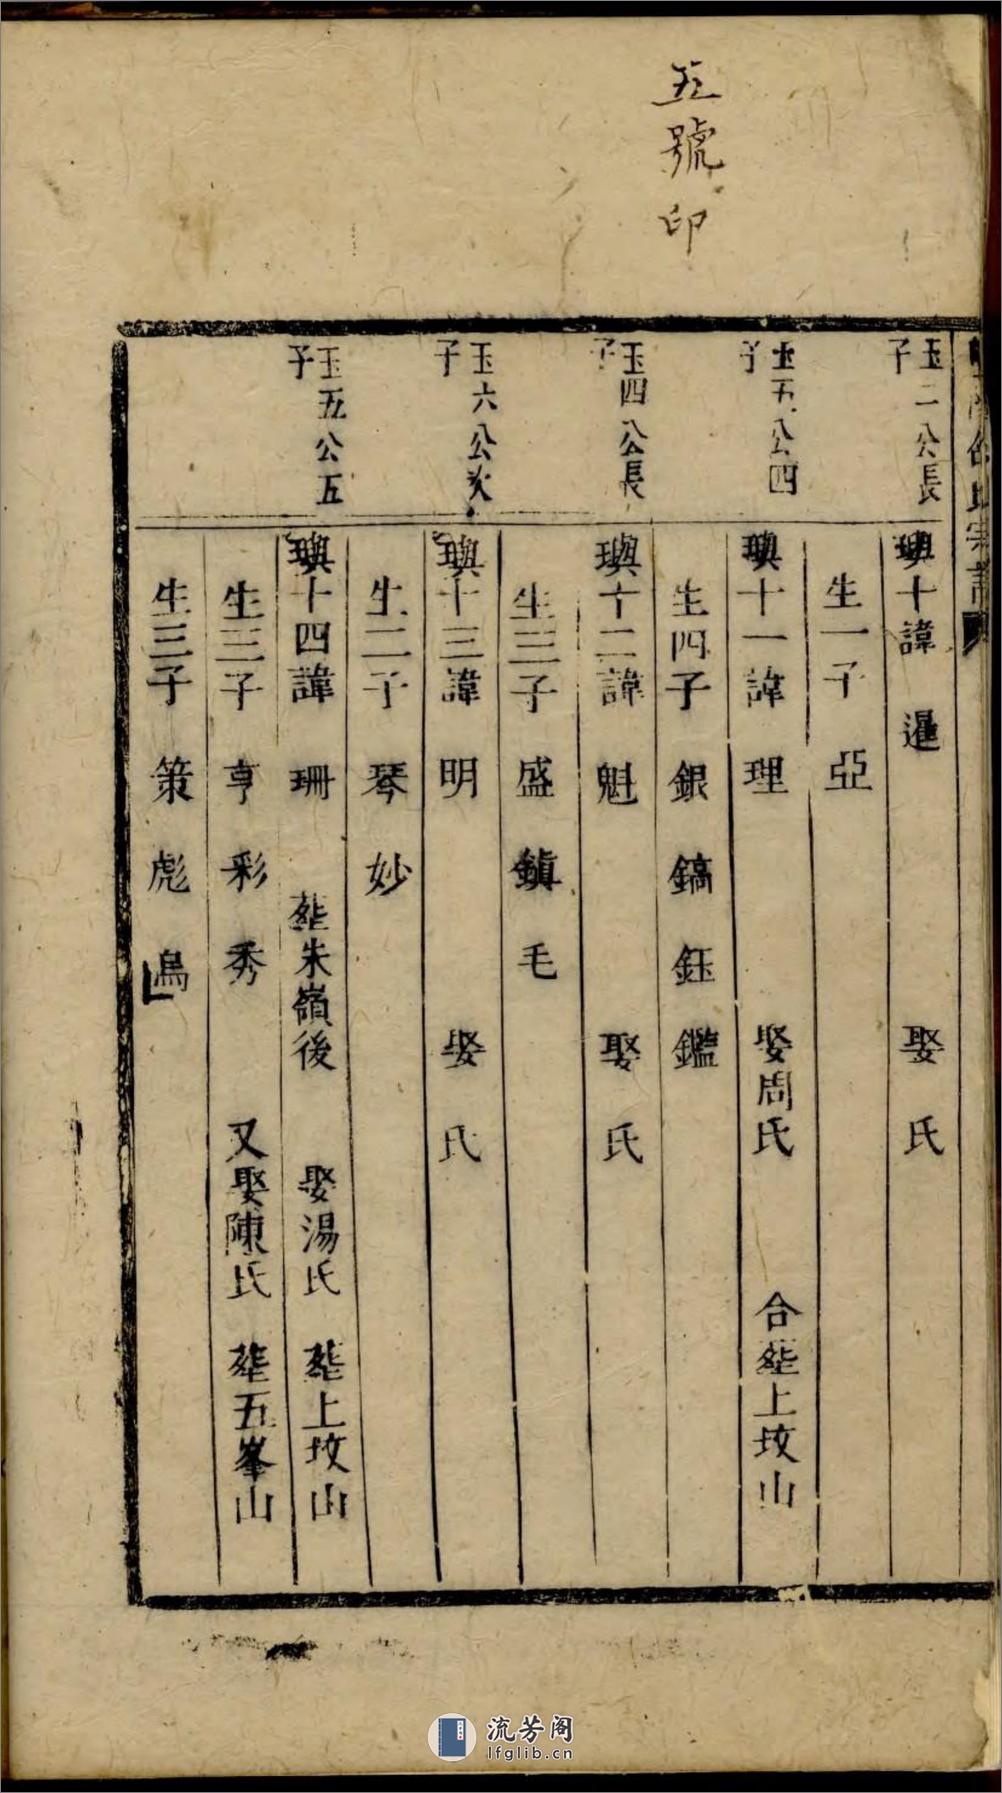 五號印
氏宗譜
玉二公長子
璵十諱 暹 娶 氏
生一子 亞
玉五公四子
璵十一諱 理 娶周氏 合塟上坟山
生四子 銀 鎬 鈺 鑑
玉四公長子
璵十二諱 魁 娶 氏
生三子 盛 鎮 毛
玉六公次子
璵十三諱 明 娶 氏
生二子 琴 妙
玉五公五子
璵十四諱 珊 塟朱嶺後 娶湯氏 塟上坟山
生三子 亨 彩 秀 又娶陳氏 塟五峯山
生三子 策 彪 鳥
流芳阁
lfglib.cn